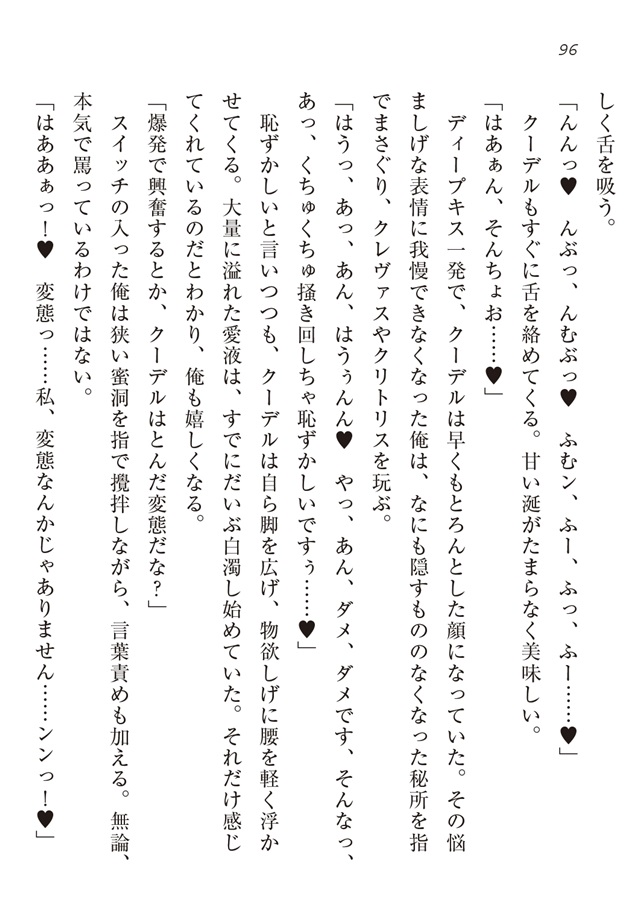 96
しく舌を吸う。
「んんっ♥　んぶっ、んむぶっ♥　ふむン、ふー、ふっ、ふー……♥」
クーデルもすぐに舌を絡めてくる。甘い涎がたまらなく美味しい。
「はあぁん、そんちょお……♥」
ディープキス一発で、クーデルは早くもとろんとした顔になっていた。その悩
ましげな表情に我慢できなくなった俺は、なにも隠すもののなくなった秘所を指
でまさぐり、クレヴァスやクリトリスを玩ぶ。
「はうっ、あっ、あん、はうぅんん♥　やっ、あん、ダメ、ダメです、そんなっ、
あっ、くちゅくちゅ掻き回しちゃ恥ずかしいですぅ……♥」
恥ずかしいと言いつつも、クーデルは自ら脚を広げ、物欲しげに腰を軽く浮か
せてくる。大量に溢れた愛液は、すでにだいぶ白濁し始めていた。それだけ感じ
てくれているのだとわかり、俺も嬉しくなる。
「爆発で興奮するとか、クーデルはとんだ変態だな？」
スイッチの入った俺は狭い蜜洞を指で攪拌しながら、言葉責めも加える。無論、
本気で罵っているわけではない。
「はああぁっ！♥　変態っ……私、変態なんかじゃありません……ンンっ！♥」